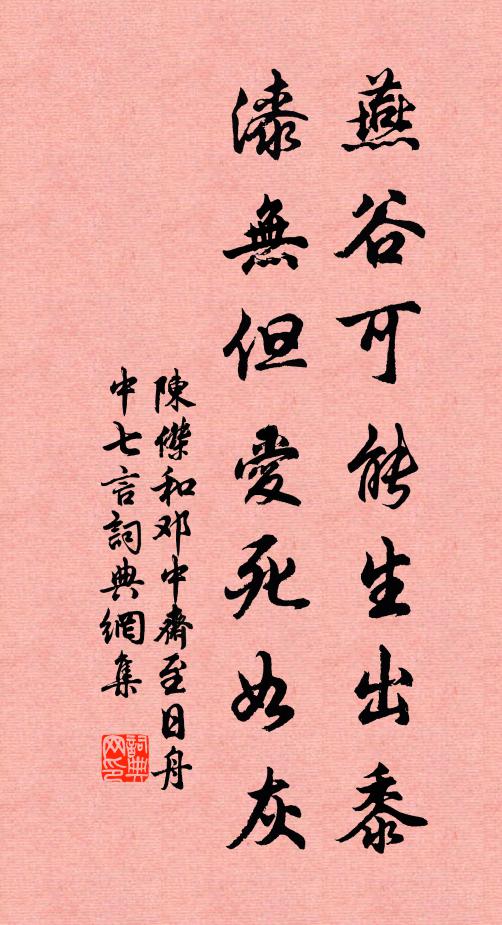 燕谷可能生出黍
漆無但愛死如灰
陳傑和邓中齋至日舟
中七言詞典網集
詞典
网印